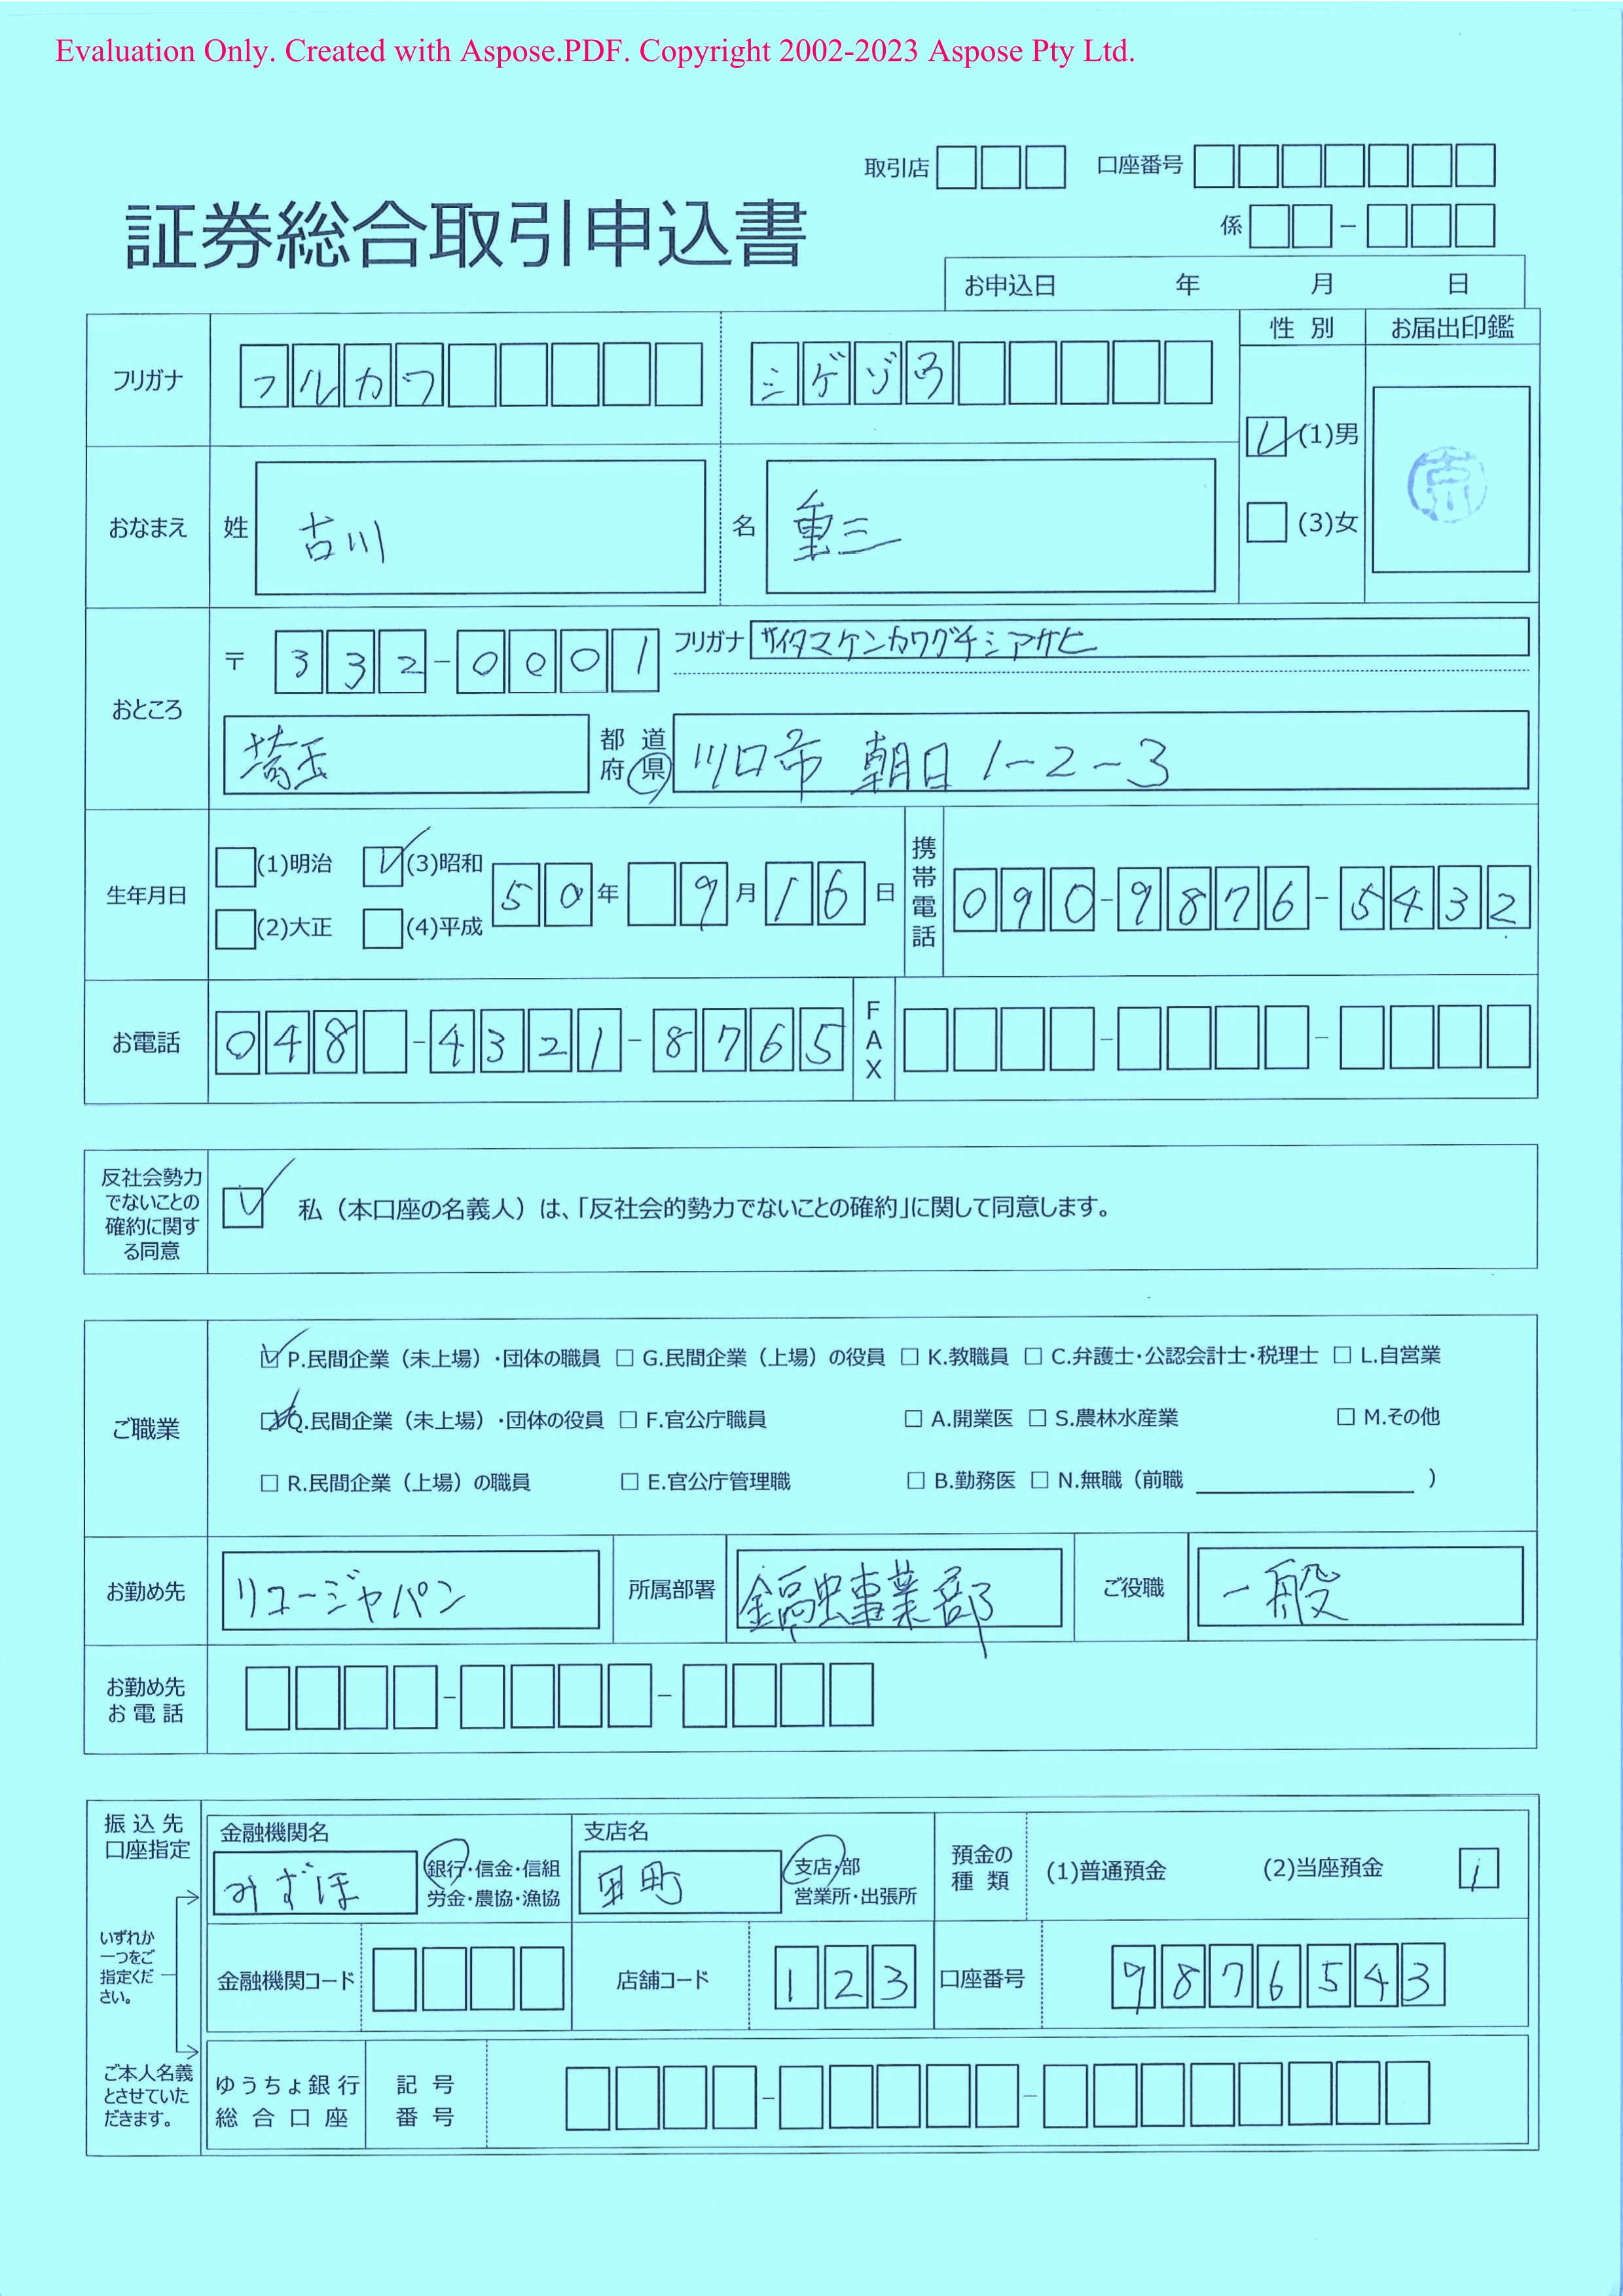 Evaluation Only. Created with Aspose.PDF. Copyright 2002-2023 Aspose Pty Ltd.
取引店 口座番号
証券総合取引申込書
係 -
お申込日 年 月 日
フリガナ フルカワ シゲゾウ 性別 お届出印鑑
(1)男
おなまえ 姓 古川 名 重三
(3)女
おところ 〒 332-0001 フリガナ サイタマケンカワグチシアサヒ
埼玉 都道府県 川口市 朝日 1-2-3
生年月日 (1)明治 (3)昭和 50年 9月16日 携帯電話 090-9876-5432
(2)大正 (4)平成
お電話 048-4321-8765 FAX - -
反社会勢力でないことの確約に関する同意 私（本口座の名義人）は、「反社会的勢力でないことの確約」に関して同意します。
ご職業
P.民間企業（未上場）・団体の職員 G.民間企業（上場）の役員 K.教職員 C.弁護士・公認会計士・税理士 L.自営業
Q.民間企業（未上場）・団体の役員 F.官公庁職員 A.開業医 S.農林水産業 M.その他
R.民間企業（上場）の職員 E.官公庁管理職 B.勤務医 N.無職（前職 ）
お勤め先 リコージャパン 所属部署 事業部 ご役職 一般
お勤め先お電話 - -
振込先口座指定
金融機関名 みずほ 銀行・信金・信組 労金・農協・漁協
支店名 町 支店・部 営業所・出張所
預金の種類 (1)普通預金 (2)当座預金 1
いずれか一つをご指定ください。
金融機関コード 店舗コード 123 口座番号 9876543
ご本人名義とさせていただきます。
ゆうちょ銀行総合口座 記号番号 - -